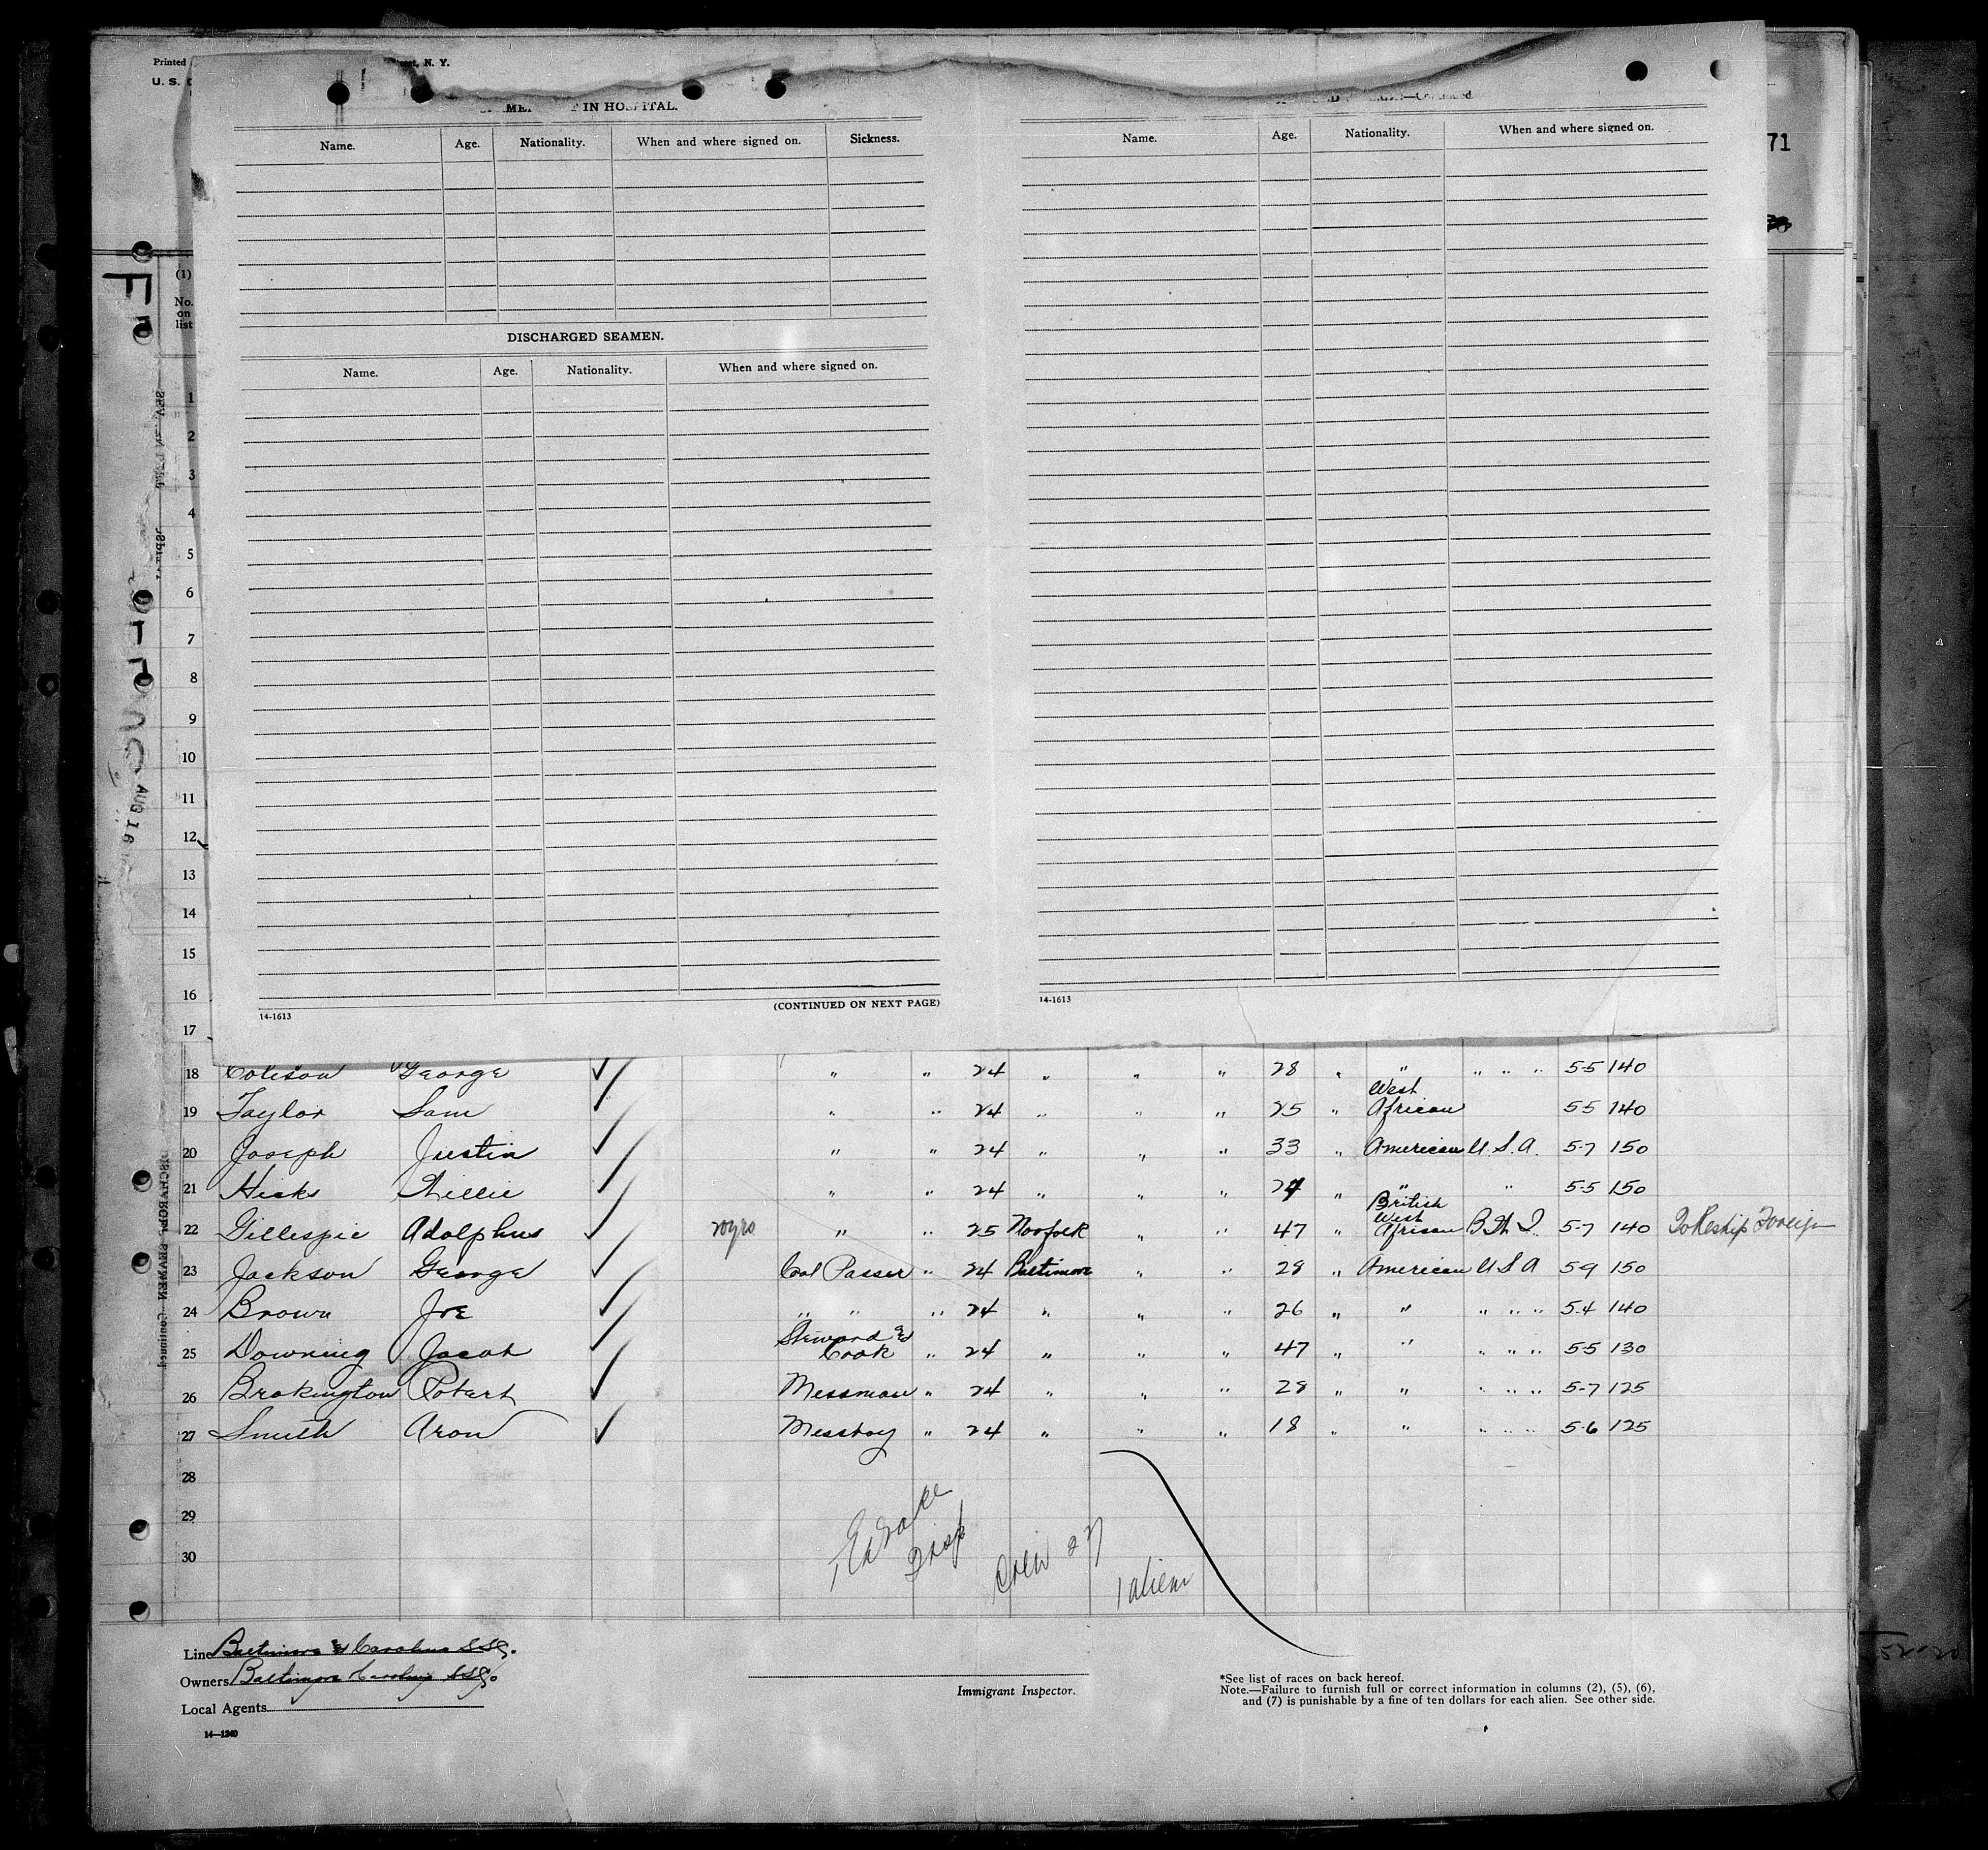 Printed
, N. Y.
U. S.
IN HOSPITAL.
Name. Age. Nationality. When and where signed on. Sickness.
Name. Age. Nationality. When and where signed on.
71
(1)
No.
on
list
DISCHARGED SEAMEN.
Name. Age. Nationality. When and where signed on.
1
2
3
4
5
6
7
8
9
10
11
12
13
14
15
16
17
AUG 16
(CONTINUED ON NEXT PAGE)
14-1613
14-1613
18 Colison George " " 24 " " " 28 " " " " " 5-5 140
19 Taylor Sam " " 24 " " " 25 " West African 5-5 140
20 Joseph Justin " " 24 " " " 33 " American U.S.A. 5-7 150
21 Hicks Willie " " 24 " " " 24 " " " 5-5 150
22 Gillespie Adolphus 20yrs " " 25 Norfolk " " 47 " British West African B.W.I. 5-7 140 To Reship Foreign
23 Jackson George Coal Passer " 24 Baltimore " " 28 " American U S A 5-9 150
24 Brown Joe " " " 24 " " " 26 " " " " " 5-4 140
25 Downing Jacob Steward & Cook " 24 " " " 47 " " " " " 5-5 130
26 Brokington Robert Messman " 24 " " " 28 " " " " " 5-7 125
27 Smith Aron Messboy " 24 " " " 18 " " " " " 5-6 125
28
29
30
Crew 27
1 alien
Line Baltimore & Carolina S.S. Co.
Owners Baltimore Carolina S.S. Co
Local Agents
14—1240
Immigrant Inspector.
*See list of races on back hereof.
Note.—Failure to furnish full or correct information in columns (2), (5), (6),
and (7) is punishable by a fine of ten dollars for each alien. See other side.